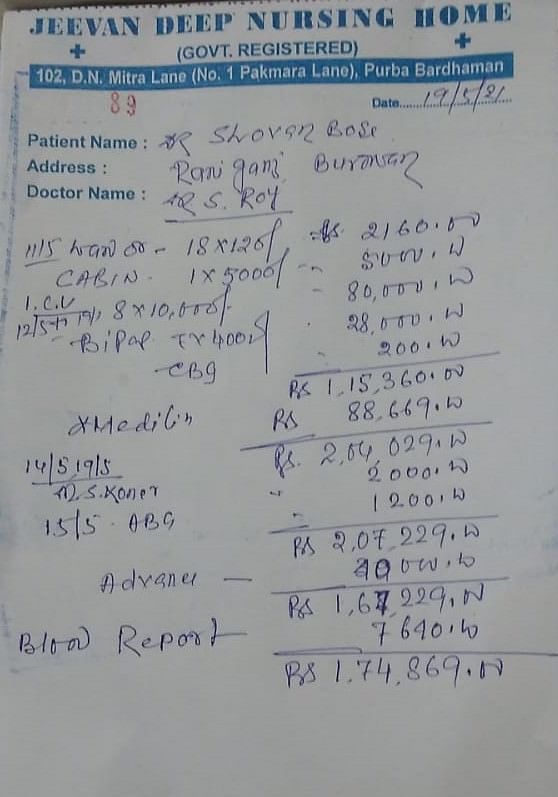 JEEVAN DEEP NURSING HOME
(GOVT. REGISTERED)
102, D.N. Mitra Lane (No. 1 Pakmara Lane), Purba Bardhaman
89
Date......19/5/21
Patient Name : DR SHOVAN BOSE
Address : Raniganj Burdwan
Doctor Name : DR S. ROY
11/5 - 18x120/ Rs. 2160.00
CABIN - 1x5000/ - 5000.00
I.C.U 8x10,000/- - 80,000.00
12/5 19/5
BiPaP 7x4000/ 28,000.00
- CBG 200.00
RS 1,15,360.00
Medicin RS 88,669.00
Rs. 2,04,029.00
14/5, 19/5 2000.00
DR. S. Koner
15/5 - ABG - 1200.00
RS 2,07,229.00
Advance - 40000.00
RS 1,67,229.00
Blood Report - 7640.00
RS 1,74,869.00